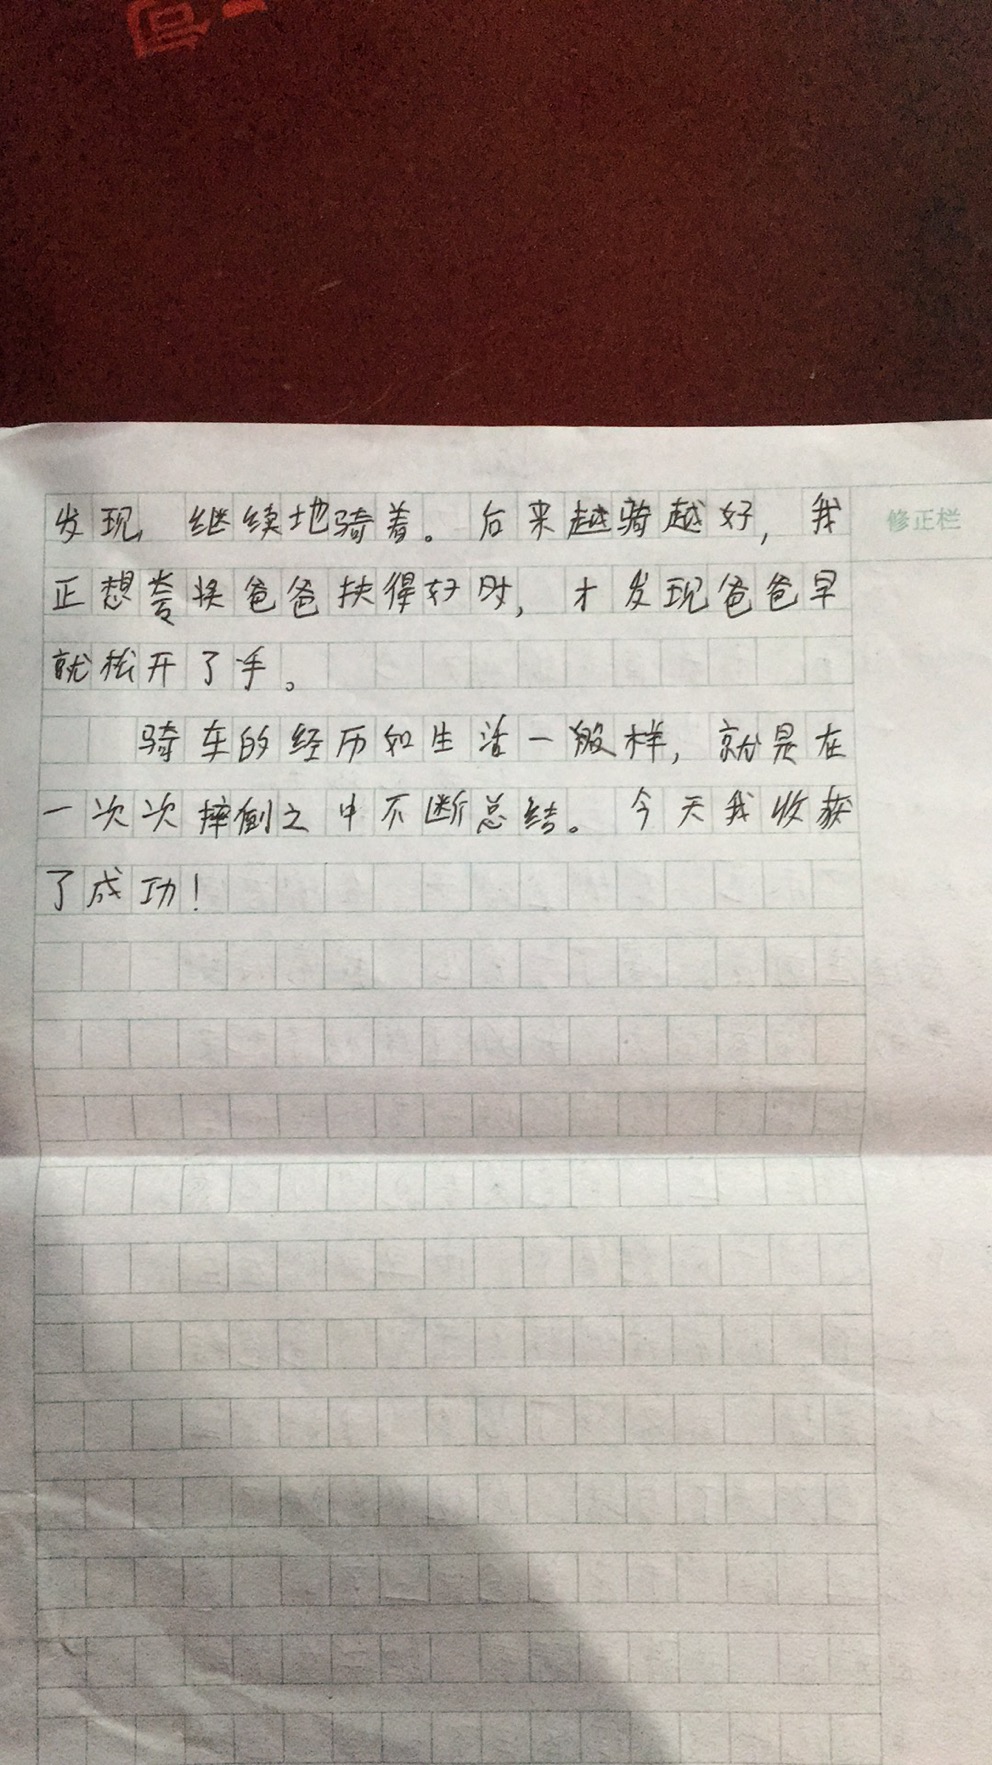 发现，继续地骑着。后来越骑越好，我
修正栏
正想夸奖爸爸扶得好时，才发现爸爸早
就松开了手。
骑车的经历如生活一般样，就是在
一次次摔倒之中不断总结。今天我收获
了成功！